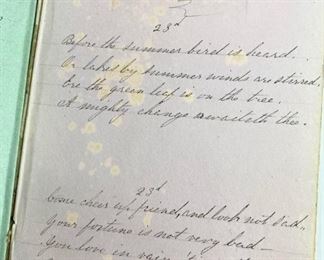 23d
Before the summer bird is heard.
Or lakes by summer winds are stirred,
Ere the green leaf is on the tree.
A mighty change awaiteth thee.
23d
Come cheer up friend, and look not sad,
Your fortune is not very bad –
You love in vain